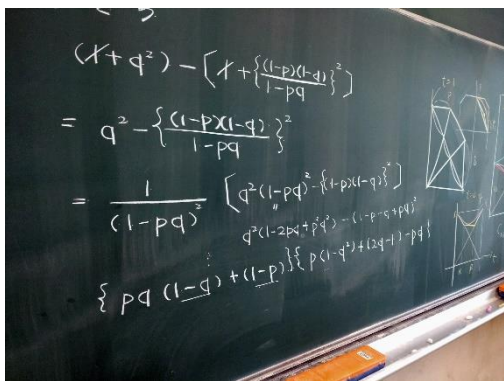 (X+q²)-[X+{(1-p)(1-q)/1-pq}²]
= q²-{(1-p)(1-q)/1-pq}²
= 1/(1-pq)² [q²(1-pq)²-{(1-p)(1-q)}²]
q²(1-2pq+p²q²)-(1-p-q+pq)²
{pq(1-q)+(1-p)}{p(1-q²)+(2q-1)-pq}